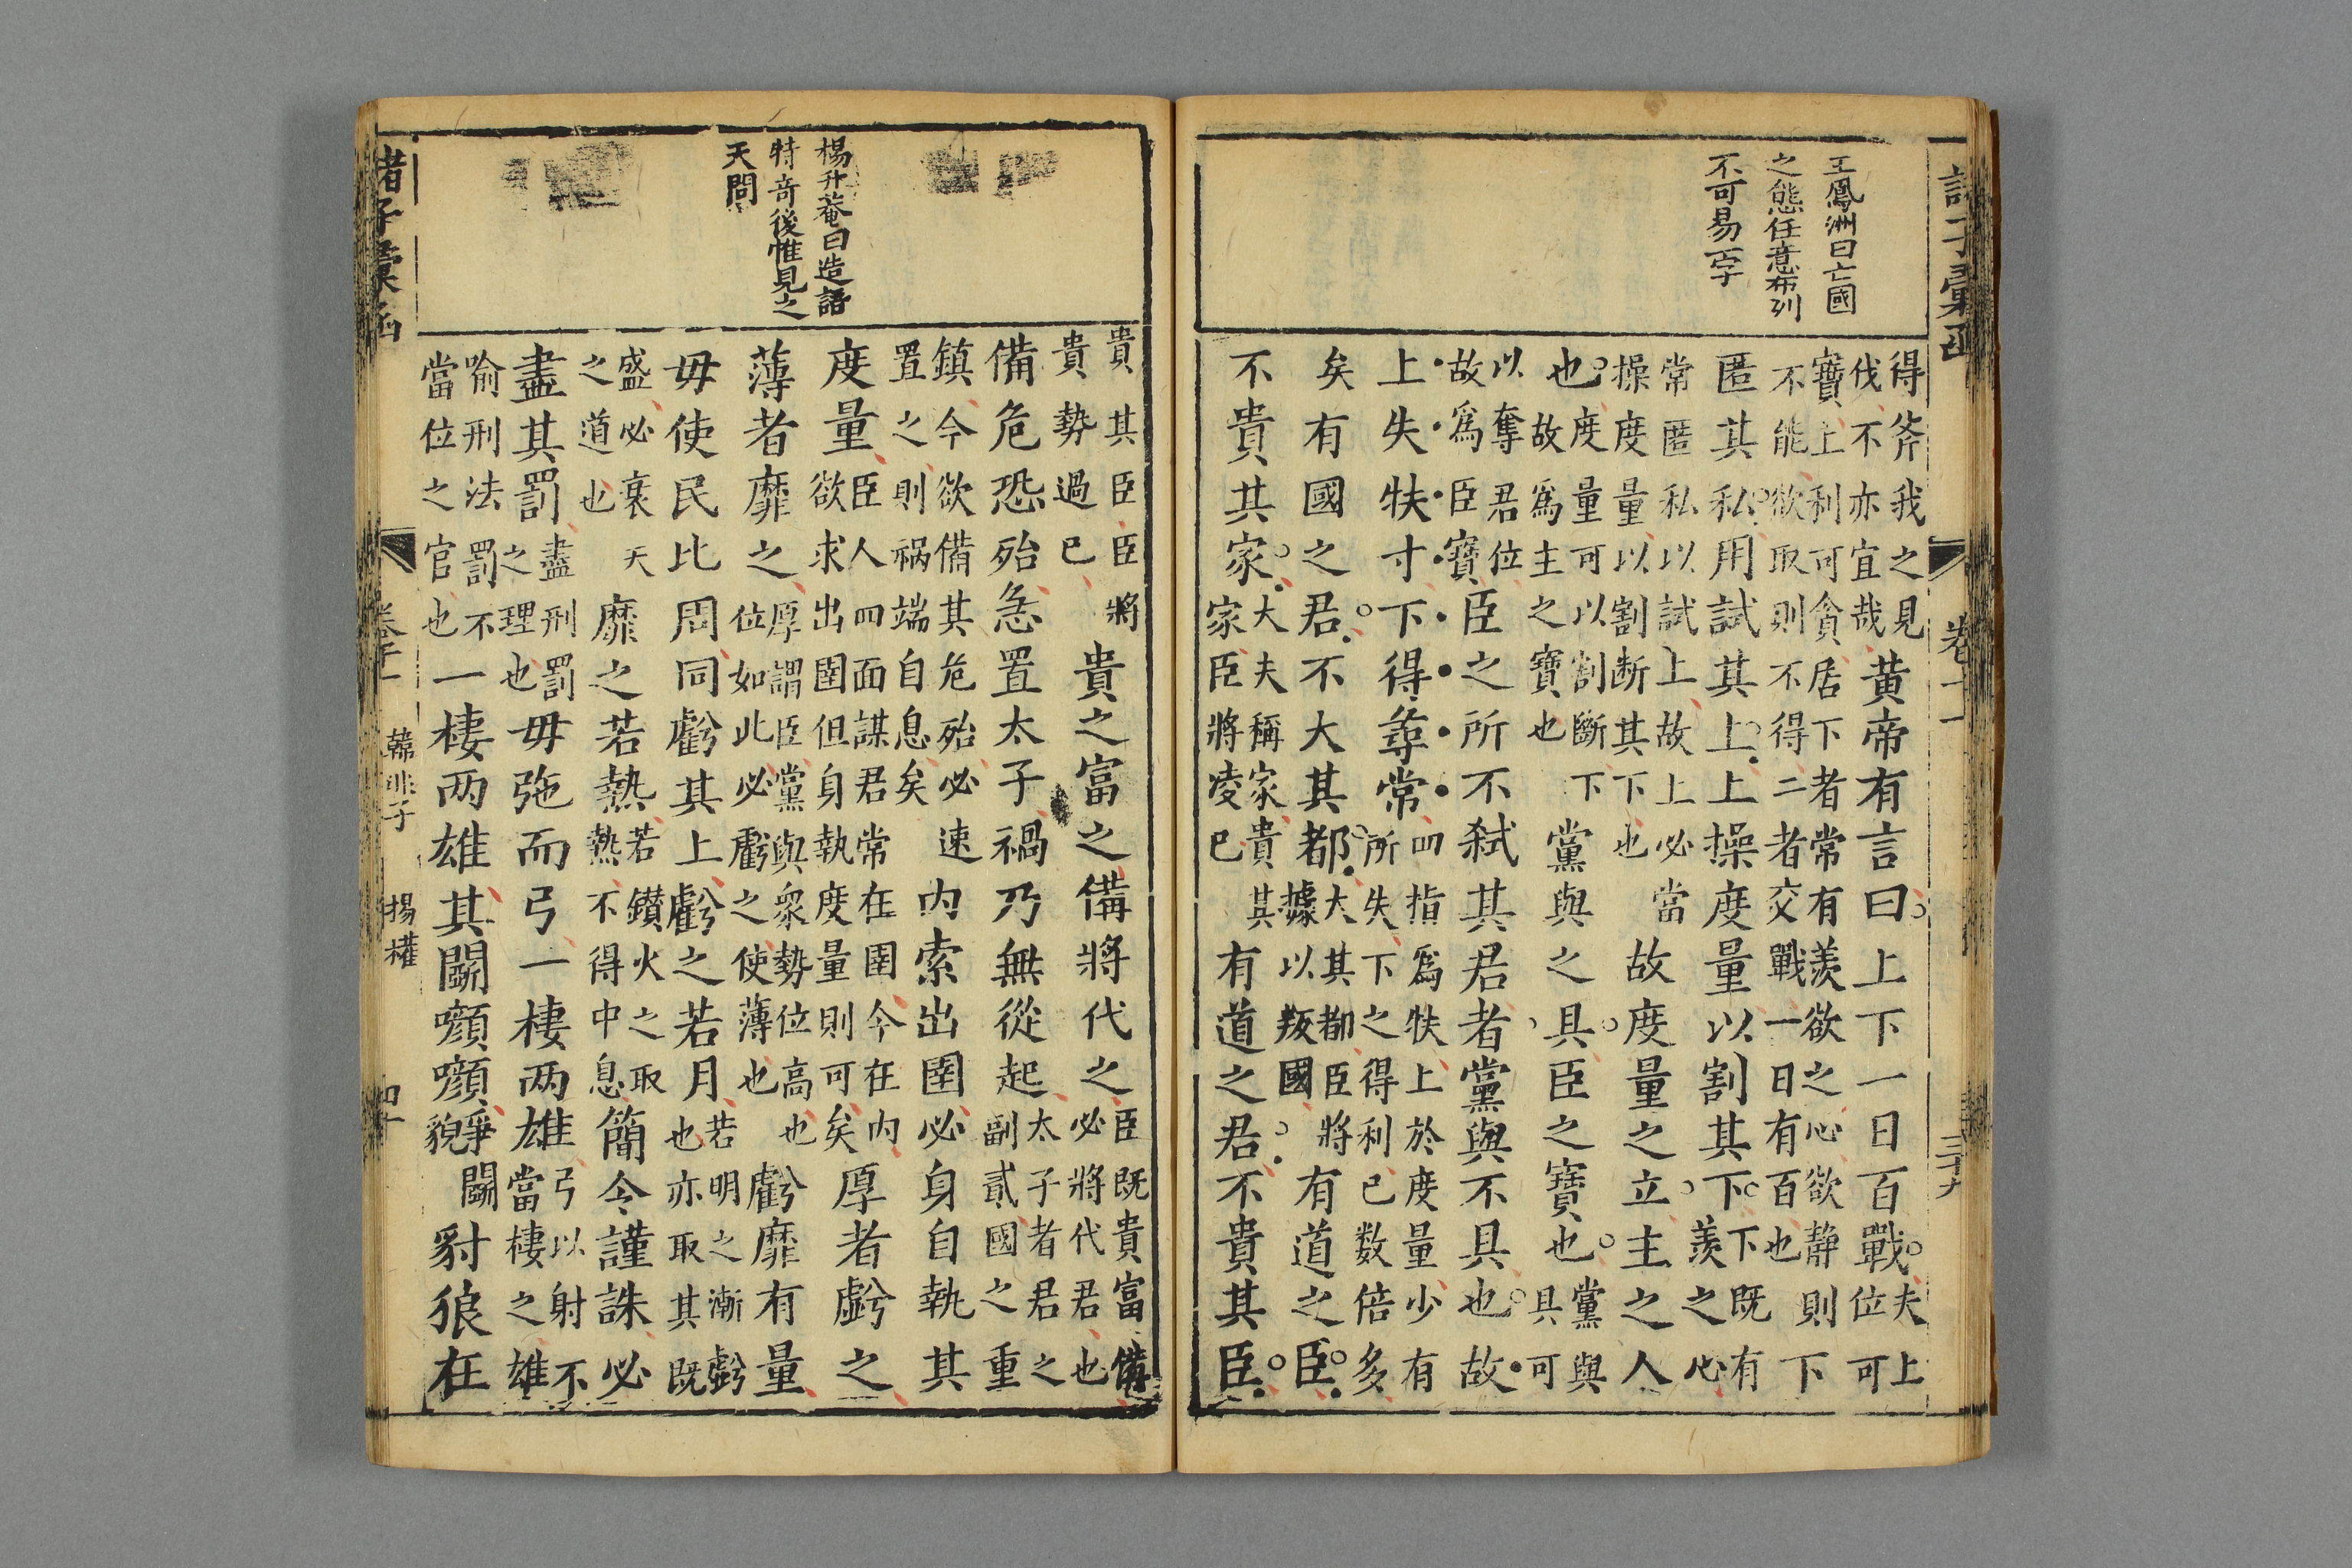 諸子彙函 卷十一 三十九
王鳳洲曰亡國
之態任意布列
不可易一字
得斧我之見伐不亦宜哉黄帝有言曰上下一日百戰夫上位可
寶上利可貪居下者常有羨欲之心欲静則下不能欲取則不得二者交戰一日有百也
匿其私用試其上上操度量以割其下下既有羨之心
常匿私以試上故上必當操度量以割断其下也故度量之立主之人
也度量可以割斷下故爲主之寶也黨與之具臣之寶也黨與具可
以奪君位故爲臣寶臣之所不弑其君者黨與不具也故
上失扶寸下得尋常四指爲扶上於度量少有所失下之得利已数倍多
矣有國之君不大其都大其都臣將據以叛國有道之臣
不貴其家大夫稱家貴其家臣將凌已有道之君不貴其臣
楊升菴曰造語
特竒後惟見之
天問
貴其臣臣將貴勢過已貴之富之備將代之臣既貴富備必將代君也
備危恐殆急置太子禍乃無從起太子者君之副貳國之重
鎮今欲備其危殆必速置之則禍端自息矣内索出圉必身自執其
度量臣人四面謀君常在圉今在内欲求出圉但身執度量則可矣厚者虧之
薄者靡之厚謂臣黨與衆勢位高也位如此必虧之使薄也虧靡有量
毋使民比周同虧其上虧之若月若明之漸虧也亦取其既
盛必衰天之道也靡之若熱若鑚火之取熱不得中息簡令謹誅必
盡其罰盡刑罰之理也毋弛而弓一棲两雄弓以射不當棲之雄
喻刑法罰不當位之官也一棲两雄其鬬㘖㘖爭鬬貌豺狼在
諸子彙函 卷十一 韓非子 揚權 四十